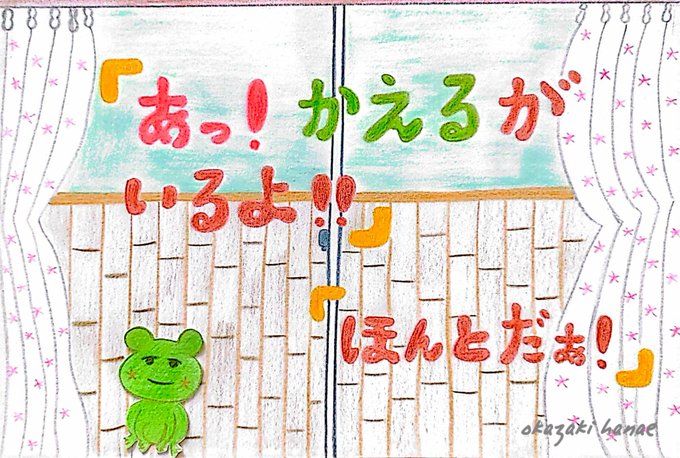 『あっ！かえるが
いるよ!!』
『ほんとだぁ！』
okazaki hanae